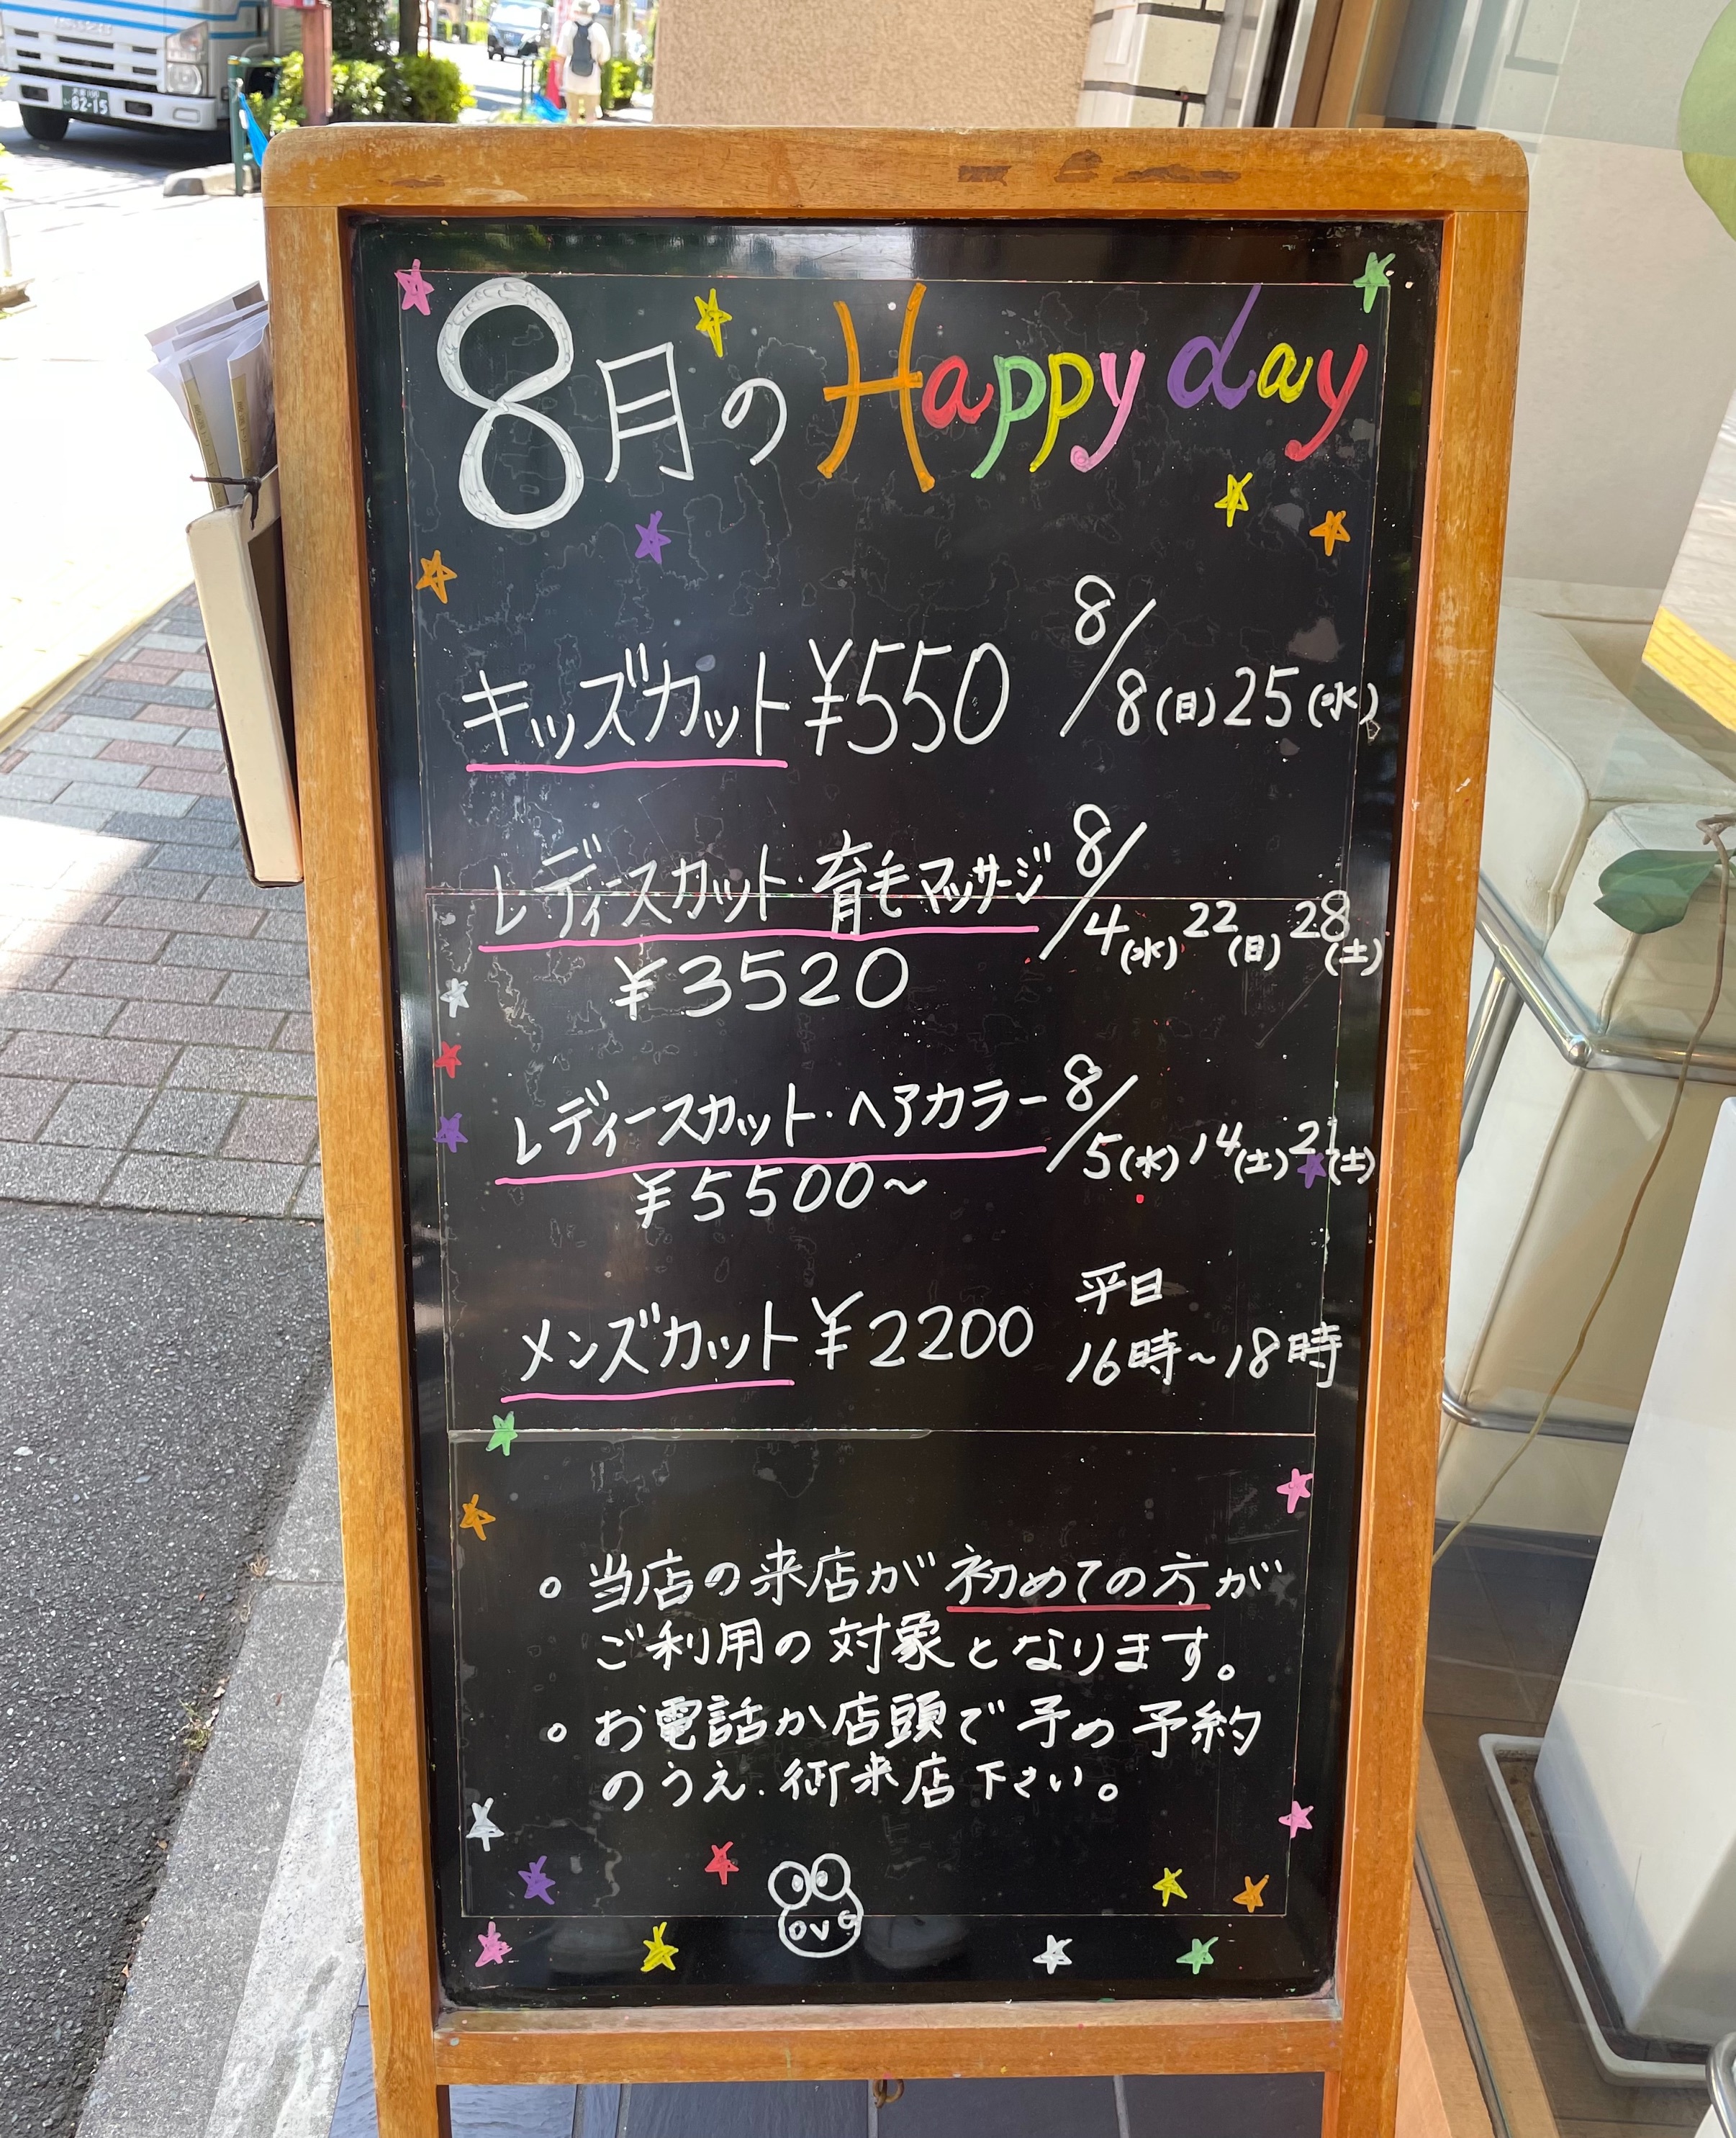 8月の Happy day
キッズカット ¥550 8/8(日) 25(水)
レディースカット・育毛マッサージ 8/4(水) 22(日) 28(土)
¥3520
レディースカット・ヘアカラー 8/5(木) 14(土) 21(土)
¥5500~
メンズカット ¥2200 平日
16時~18時
。当店の来店が初めての方が
ご利用の対象となります。
。お電話か店頭で予め予約
のうえ、御来店下さい。
82-15